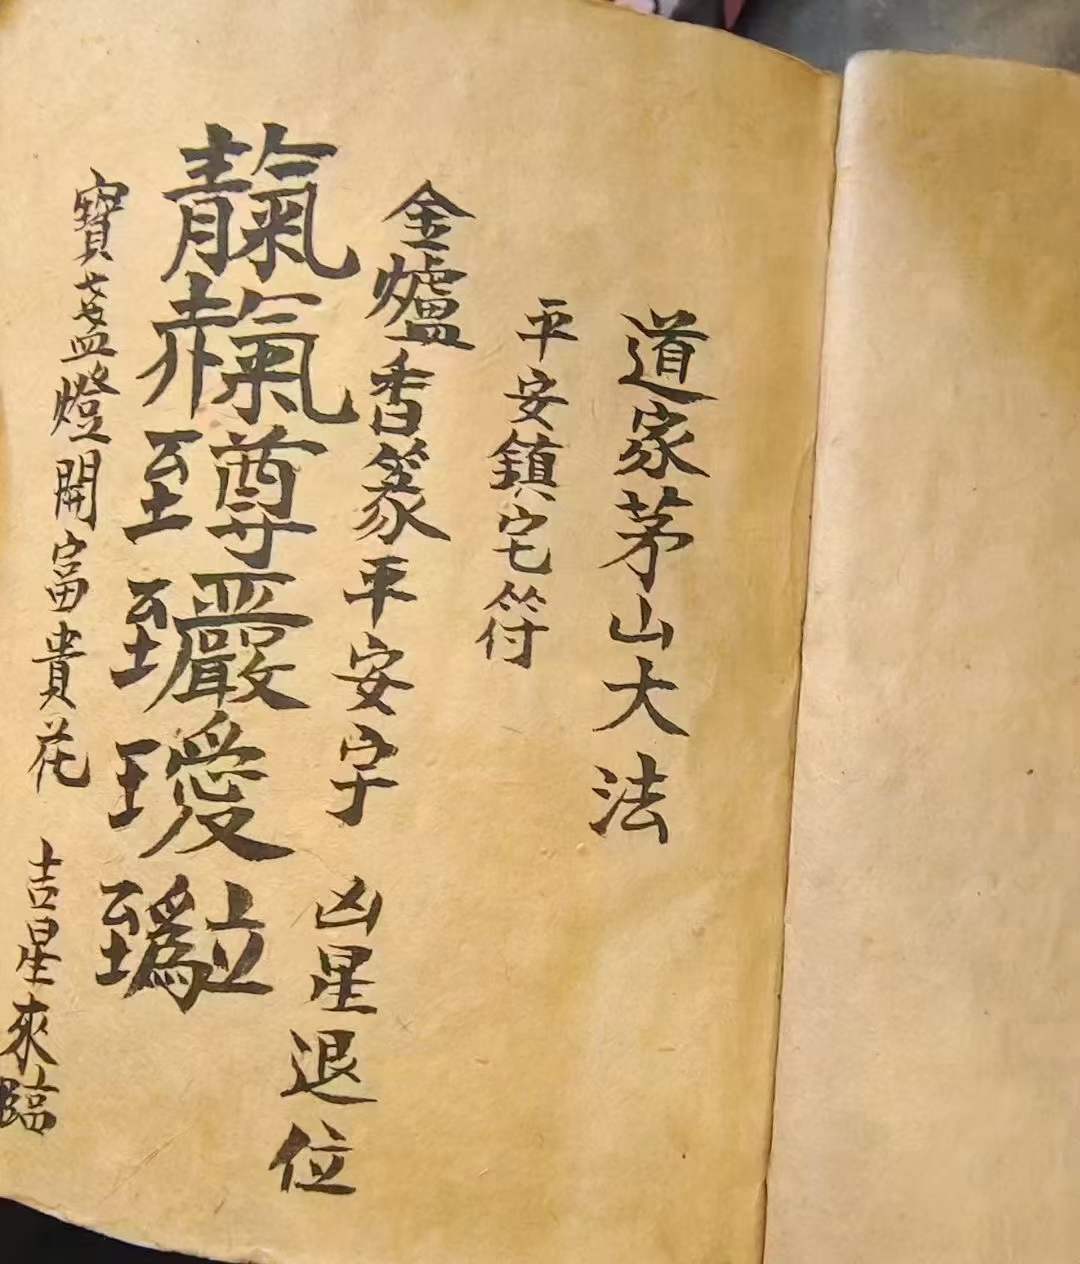 道家茅山大法
平安鎮宅符
金爐香篆平安字 凶星退位
靝璦
寶蓋燈開富貴花 吉星來臨